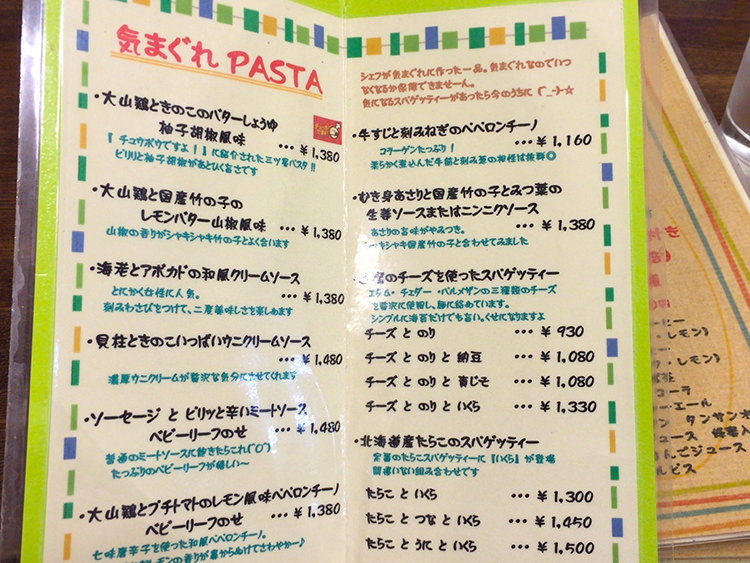 気まぐれ PASTA
・大山鶏ときのこのバターしょうゆ
柚子胡椒風味 ・・・ ¥1,380
『チュウボウですよ!』に紹介された三ツ星パスタ!!
ピリリと柚子胡椒があとひく旨さです
・大山鶏と国産竹の子の
レモンバター山椒風味 ・・・ ¥1,380
山椒の香りがシャキシャキ竹の子とよく合います
・海老とアボカドの和風クリームソース
とにかく女性に人気。 ・・・ ¥1,380
刻みわさびをつけて、二度美味しさを楽しめます
・貝柱ときのこいっぱいウニクリームソース
・・・ ¥1,480
濃厚ウニクリームが贅沢な気分にさせてくれます
・ソーセージ と ピリッと辛いミートソース
ベビーリーフのせ ・・・ ¥1,480
普通のミートソースに飽きたらこれ(^O^)
たっぷりのベビーリーフが嬉しい〜
・大山鶏とプチトマトのレモン風味ペペロンチーノ
ベビーリーフのせ ・・・ ¥1,380
七味唐辛子を使った和風ペペロンチーノ。
レモンの香りが鼻からぬけてさわやかー♪
シェフが気まぐれに作った一品。気まぐれなのでいつ
なくなるか保障できませーん。
気になるスパゲッティーがあったら今のうちに (^_-)-☆
・牛すじと刻みねぎのペペロンチーノ
・・・ ¥1,160
コラーゲンたっぷり!
柔らかく煮込んだ牛筋と刻み葱の相性は抜群◎
・むき身あさりと国産竹の子とみつ葉の
生姜ソースまたはニンニクソース
・・・ ¥1,380
あさりの旨味がやみつき。
シャキシャキ国産竹の子と合わせてみました
のチーズを使ったスパゲッティー
エダム・チェダー・パルメザンの三種類のチーズ
を贅沢に使用し、麺に絡めています。
シンプルに海苔だけでも旨い。くせになりますよ
チーズ と のり ・・・ ¥930
チーズ と のり と 納豆 ・・・ ¥1,080
チーズ と のり と 青じそ ・・・ ¥1,080
チーズ と のり と いくら ・・・ ¥1,330
・北海道産たらこのスパゲッティー
定番のたらこスパゲッティーに『いくら』が登場
間違いない組み合わせです
たらこ と いくら ・・・ ¥1,300
たらこ と つな と いくら ・・・ ¥1,450
たらこ と うに と いくら ・・・ ¥1,500
付き
ーヒー
・レモン)
コーラ
・エール
タンサン
ジュース
んごジュース
ルピス